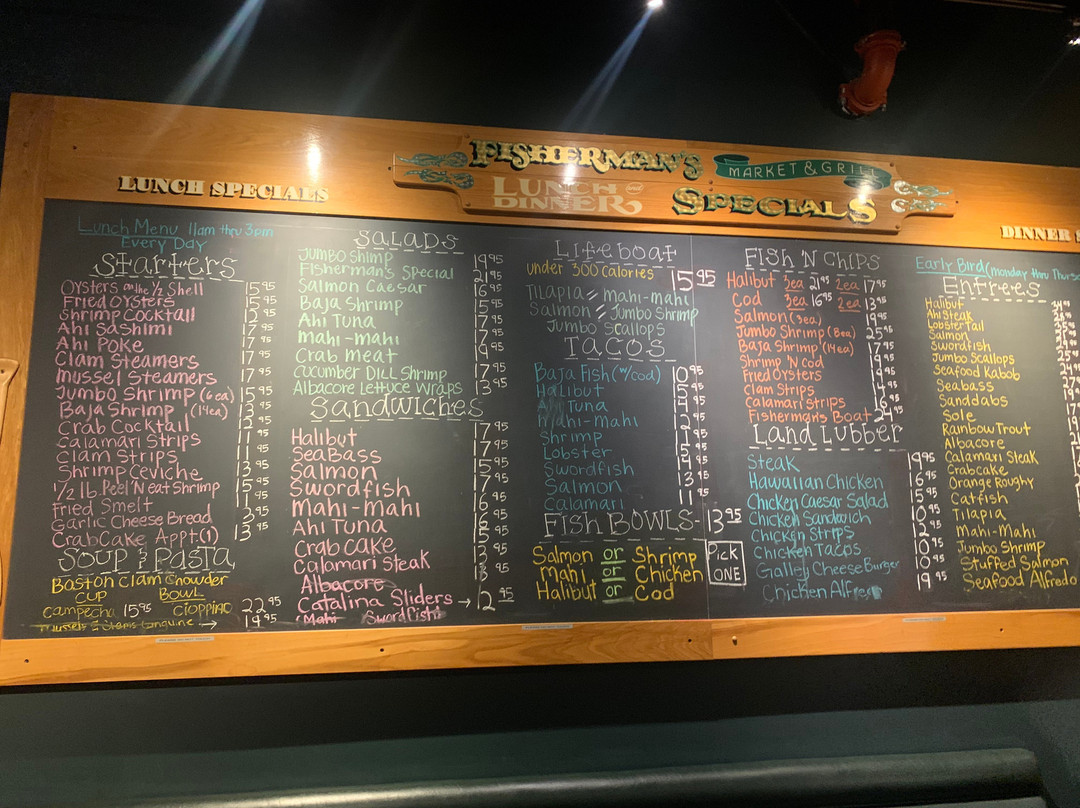 FISHERMAN'S
MARKET & GRILL
LUNCH and DINNER
SPECIALS
LUNCH SPECIALS
Lunch Menu 11am thru 3pm
Every Day
Starters
Oysters on the 1/2 Shell 15 95
Fried Oysters 15 95
Shrimp Cocktail 12 95
Ahi Sashimi 17 95
Ahi Poke 17 95
Clam Steamers 17 95
Mussel Steamers 17 95
Jumbo Shrimp (6ea) 15 95
Baja Shrimp (14ea) 13 95
Crab Cocktail
Calamari Strips
Clam Strips
Shrimp Ceviche
1/2 lb. Peel N eat Shrimp
Fried Smelt
Garlic Cheese Bread
Crab Cake Appt.(1)
Soup & Pasta
Boston Clam Chowder
Cup Bowl
Campecha 15 95 Cioppino 22 95
19 95
Salads
Jumbo Shrimp 19 95
Fisherman's Special 21 95
Salmon Caesar 16 95
Baja Shrimp 15 95
Ahi Tuna 17 95
Mahi-mahi 17 95
Crab Meat 19 95
Cucumber Dill Shrimp
Albacore Lettuce Wraps 13 95
Sandwiches
Halibut 17 95
SeaBass 17 95
Salmon 15 95
Swordfish 17 95
Mahi-Mahi 16 95
Ahi Tuna
Crab Cake
Calamari Steak
Albacore
Catalina Sliders → 12 95
Mahi Swordfish
Lifeboat
under 300 calories 15 95
Tilapia // mahi-mahi
Salmon // Jumbo Shrimp
Jumbo Scallops
Tacos
Baja Fish (w/cod) 10 95
Halibut
Ahi Tuna
Mahi-mahi
Shrimp
Lobster
Swordfish
Salmon
Calamari 11 95
Fish Bowls - 13 95
Salmon or Shrimp
Mahi or Chicken
Halibut or Cod
Pick
ONE
Fish 'N Chips
Halibut 3ea 21 95 2ea 17 95
Cod 3ea 16 95 2ea 13 95
Salmon (3ea) 19 95
Jumbo Shrimp (8ea) 25 95
Baja Shrimp (14ea)
Shrimp 'N Cod
Fried Oysters
Clam Strips
Calamari Strips
Fisherman's Boat 24 95
Land Lubber
Steak 19 95
Hawaiian Chicken 16 95
Chicken Caesar Salad 15 95
Chicken Sandwich
Chicken Strips
Chicken Tacos
Galley Cheese Burger
Chicken Alfredo 19 95
DINNER
Early Bird (Monday thru
Entrees
Halibut
Ahi Steak
Lobster Tail
Salmon
Swordfish
Jumbo Scallops
Seafood Kabob
Seabass
Sanddabs
Sole
Rainbow Trout
Albacore
Calamari Steak
Crabcake
Orange Roughy
Catfish
Tilapia
Mahi-Mahi
Jumbo Shrimp
Stuffed Salmon
Seafood Alfredo